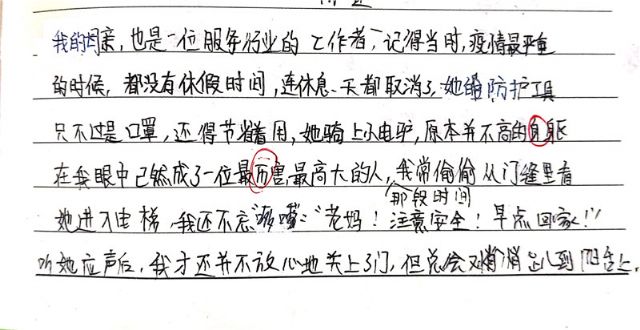 我的母亲，也是一位服务行业的工作者，记得当时，疫情最严重
的时候，都没有休假时间，连休息一天都取消了，她的防护工具
只不过是口罩，还得节省着用，她骑上小电驴，原本并不高的身躯
在我眼中已然成了一位最厉害，最高大的人，我常偷偷从门缝里看
那段时间
她进入电梯，我还不忘“嘟嚷”：“老妈！注意安全！早点回家！”
听她应声后，我才还并不放心地关上了门，但总会又悄悄趴到阳台上，